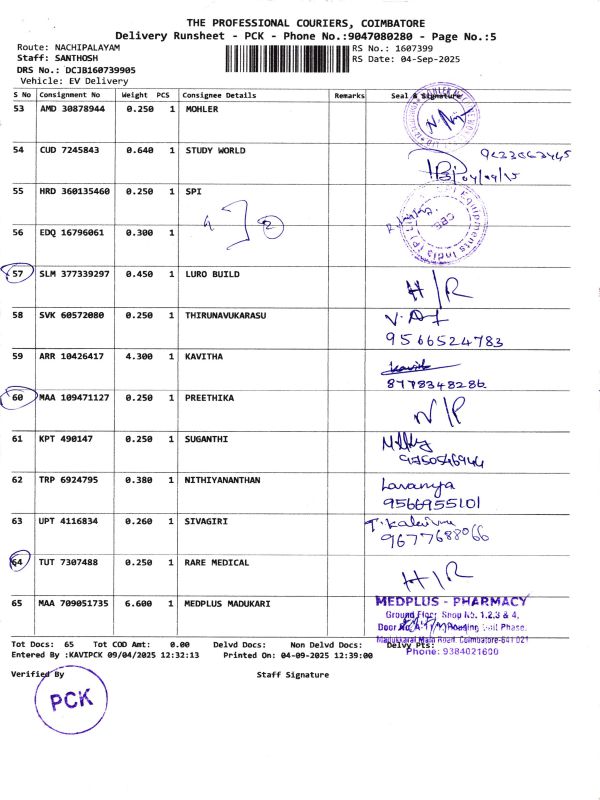 THE PROFESSIONAL COURIERS, COIMBATORE
Delivery Runsheet - PCK - Phone No.:9047080280 - Page No.:5
Route: NACHIPALAYAM RS No.: 1607399
Staff: SANTHOSH RS Date: 04-Sep-2025
DRS No.: DCJB160739905
Vehicle: EV Delivery
S No Consignment No Weight PCS Consignee Details Remarks Seal & Signature
53 AMD 30878944 0.250 1 MOHLER
54 CUD 7245843 0.640 1 STUDY WORLD
55 HRD 360135460 0.250 1 SPI
56 EDQ 16796061 0.300 1
2
57 SLM 377339297 0.450 1 LURO BUILD H/R
58 SVK 60572080 0.250 1 THIRUNAVUKARASU
9566524783
59 ARR 10426417 4.300 1 KAVITHA
8778348286
60 MAA 109471127 0.250 1 PREETHIKA N/P
61 KPT 490147 0.250 1 SUGANTHI
62 TRP 6924795 0.380 1 NITHIYANANTHAN Lavanya
9566955101
63 UPT 4116834 0.260 1 SIVAGIRI
9677688066
64 TUT 7307488 0.250 1 RARE MEDICAL H/R
65 MAA 709051735 6.600 1 MEDPLUS MADUKARI
MEDPLUS - PHARMACY
Ground Floor, Shop No. 1,2,3 & 4,
Door No. Phase
Madukkarai Main Road, Coimbatore-641 021
Phone: 9384021600
Tot Docs: 65 Tot COD Amt: 0.00 Delvd Docs: Non Delvd Docs: Delvy Pts:
Entered By :KAVIPCK 09/04/2025 12:32:13 Printed On: 04-09-2025 12:39:00
Verified By Staff Signature
PCK